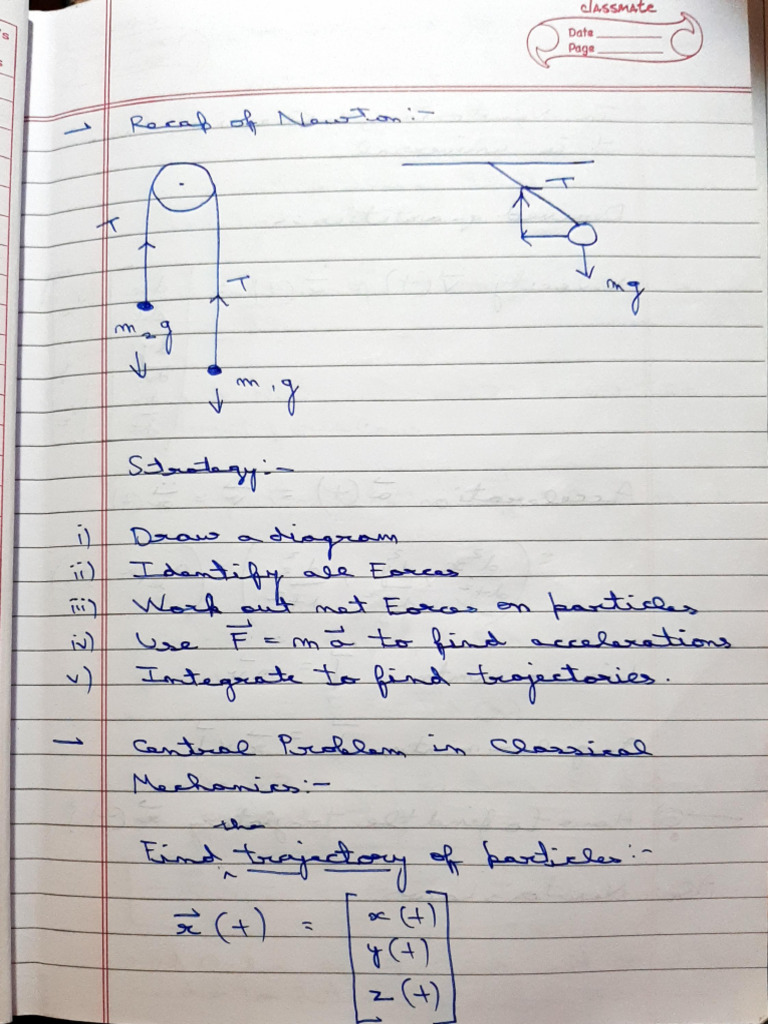 classmate
Date
Page
→ Recap of Newton:-
T
T
T
mg
m₂g
m₁g
Strategy:-
i) Draw a diagram
ii) Identify all Forces
iii) Work out net Forces on particles
iv) Use F⃗ = ma⃗ to find accelerations
v) Integrate to find trajectories.
→ Central Problem in Classical
Mechanics:-
Find the trajectory of particles:-
x⃗(t) = [x(t)
y(t)
z(t)]